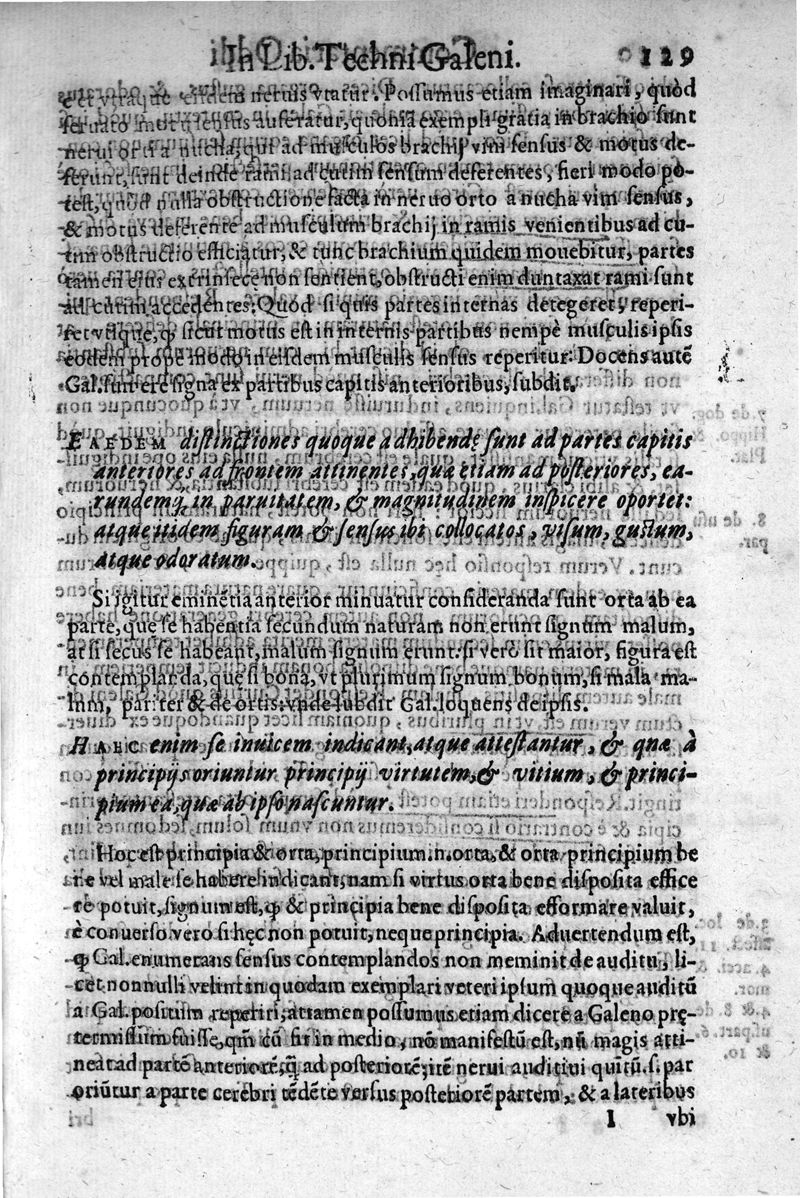 In Lib. Techni Galeni. 129
eisdem neruis vtatur. Possumus etiam imaginari, quòd
seruato motu sensus auferatur, quoniã exempli gratia in brachio sunt
nerui orti a nucha, qui ad musculos brachij vim sensus & motus de-
ferunt, sunt deinde rami ad cutim sensum deferentes, fieri modo po-
test, quod nulla obstructione facta in neruo orto a nucha vim sensus,
& motus deferente ad musculum brachij in ramis venientibus ad cu-
tim obstructio efficiatur, & tunc brachium quidem mouebitur, partes
tamen eius extrinsece non sentient, obstructi enim duntaxat rami sunt
ad cutim accedentes. Quòd si quis partes internas detegeret, reperi-
ret vtique, ꝙ sicut motus est in internis partibus nempè musculis ipsis
eodem prope modo in eisdem musculis sensus reperitur. Docens autẽ
Gal. sumere signa ex partibus capitis anterioribus, subdit.
EAEDEM distinctiones quoque adhibendę sunt ad partes capitis
anteriores ad frontem attinentes, quæ etiam ad posteriores, ea-
rundemq; in paruitatem, & magnitudinem inspicere oportet:
atque itidem figuram & sensus ibi collocatos, visum, gustum,
atque odoratum.
Si igitur eminẽtia anterior minuatur consideranda sunt orta ab ea
parte, que se habentia secundum naturam non erunt signum malum,
at si secus se habeant, malum signum erunt: si vero sit maior, figura est
contemplanda, que si bona, vt plurimum signum bonum, si mala ma-
lum, pariter & de ortis: vnde subdit Gal. loquens de ipsis.
HAEC enim se inuicem indicant, atque attestantur, & quæ à
principijs oriuntur principij virtutem, & vitium, & princi-
pium ea, quæ ab ipso nascuntur.
Hoc est principia & orta, principium .n. orta, & orta principium be
ne vel male se habere indicant, nam si virtus orta bene disposita effice
re potuit, signum est, ꝙ & principia bene disposita efformare valuit,
è conuerso vero si hęc non potuit, neque principia. Aduertendum est,
ꝙ Gal. enumerans sensus contemplandos non meminit de auditu, li-
cet nonnulli velint in quodam exemplari veteri ipsum quoque auditũ
a Gal. positum reperiri; attamen possumus etiam dicere a Galeno prę-
termissum fuisse, qm̃ cũ sit in medio, nõ manifestũ est, nũ magis atti-
neat ad partẽ anteriorẽ, q̃ ad posteriorẽ; itẽ nerui auditiui quitũ. s. par
oriũtur a parte cerebri tẽdẽte versus posteriorẽ partem, & a lateribus
I vbi